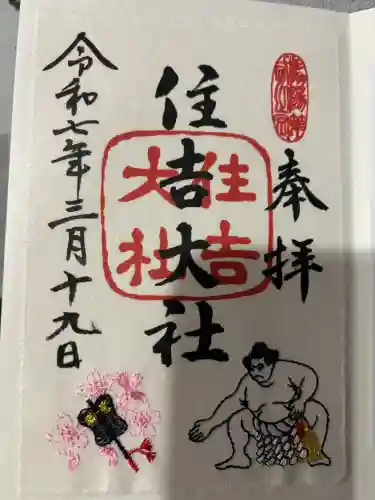 奉拝
住吉大社
住吉大社
令和七年三月十九日